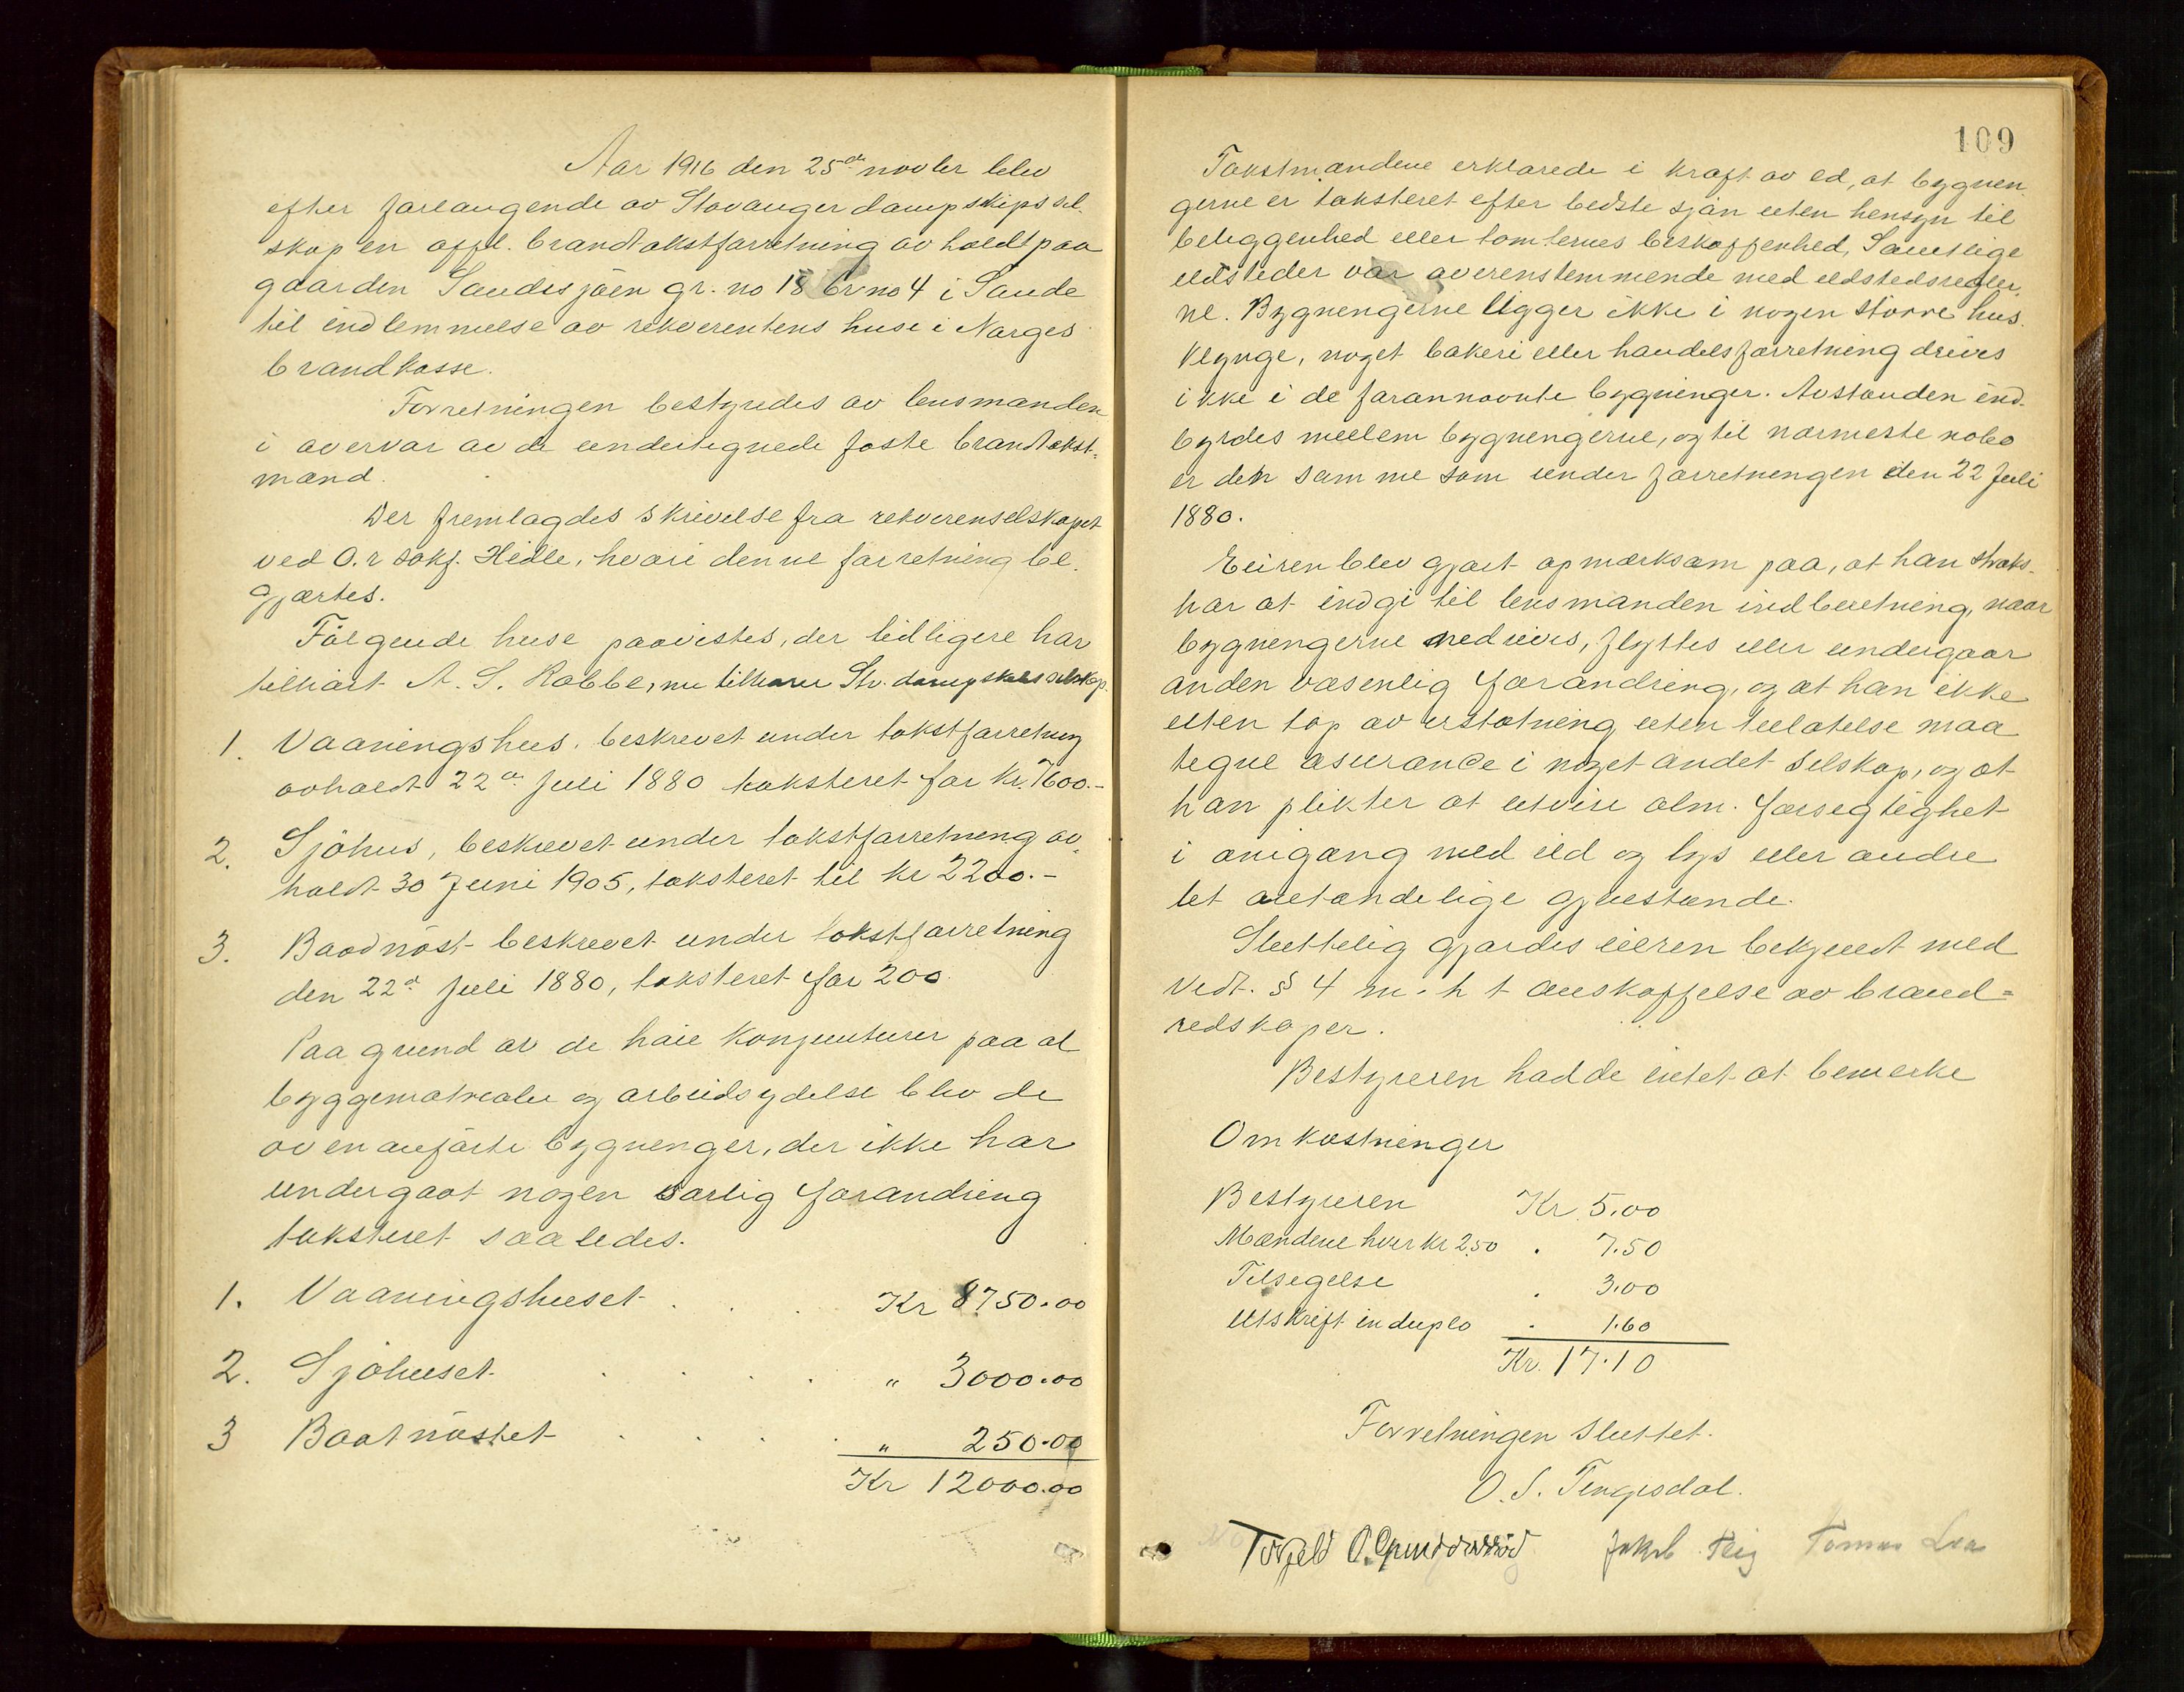 Aar 1916 den 25de novber blev
efter forlangende av Stavanger dampskipssel-
skap en offl. brandtakstforretning avholdt paa
gaarden Sandesjöen gr. no 18 br no 4 i Sande
til indlemmelse av rekverentens huse i Norges
brandkasse.
Forretningen bestyredes av lensmanden
i overvær av de undertegnede faste brandtakst-
mænd.
Der fremlagdes skrivelse fra rekverenselskapet
ved O.r sakf. Hidle, hvori denne forretning be-
gjærtes.
Følgende huse paavistes, der tidligere har
tilhört A. S. Rabbe, nu tilhører Stv. dampskibsselskap.
1. Vaaningshus, beskrevet under takstforretning
avholdt 22de Juli 1880 taksteret for Kr. 7600.-
2. Sjöhus, beskrevet under takstforretning av-
holdt 30 Juni 1905, taksteret til kr 2200.-
3. Baadnöst beskrevet under takstforretning
den 22d Juli 1880, taksteret for 200
Paa grund av de høie konjunturer paa al
byggematrealer og arbeidsydelse blev de
ovenanførte bygninger, der ikke har
undergaat nogen særlig forandring
taksteret saaledes.
1. Vaaningshuset . . . Kr 8750.00
2. Sjöhuset . . . . " 3000.00
3 Baatnöstet . . . . " 250.00
Kr 12000.00
109
Takstmændene erklærede i kraft av ed, at bygnin-
gerne er taksteret efter bedste sjön uten hensyn til
beliggenhed eller tomternes beskaffenhed, Samtlige
ildsteder var overenstemmende med ildstedsregler-
ne. Bygningerne ligger ikke i nogen större hus-
klynge, noget bakeri eller handelsforretning drives
ikke i de forannævnte bygninger. Avstanden ind-
byrdes mellem bygningerne, og til nærmeste nabo
er den samme som under forretningen den 22 Juli
1880.
Eiren blev gjort opmærksom paa, at han straks
har at indgi til lensmanden indberetning, naar
bygningerne nedrives, flyttes eller undergaar
anden væsenlig forandring, og at han ikke
uten tap av erstatning uten tillatelse maa
tegne asurance i noget andet selskap, og at
han plikter at utvise alm. forsegtighet
i omgang med ild og lys eller andre
let antændelige gjenstande.
Sluttelig gjordes eieren bekjendt med
Vedt. § 4 m. h t anskaffelse av brand=
redskaper.
Bestyreren hadde intet at bemerke
Omkostninger
Bestyreren Kr 5.00
Mændene hver kr 2.50 . 7.50
Tilsegelse . 3.00
Utskrift in duplo . 1.60
Kr. 17.10
Forretningen sluttet.
O. S. Tengesdal.
Torjeld O. Jakob Tomas Lea